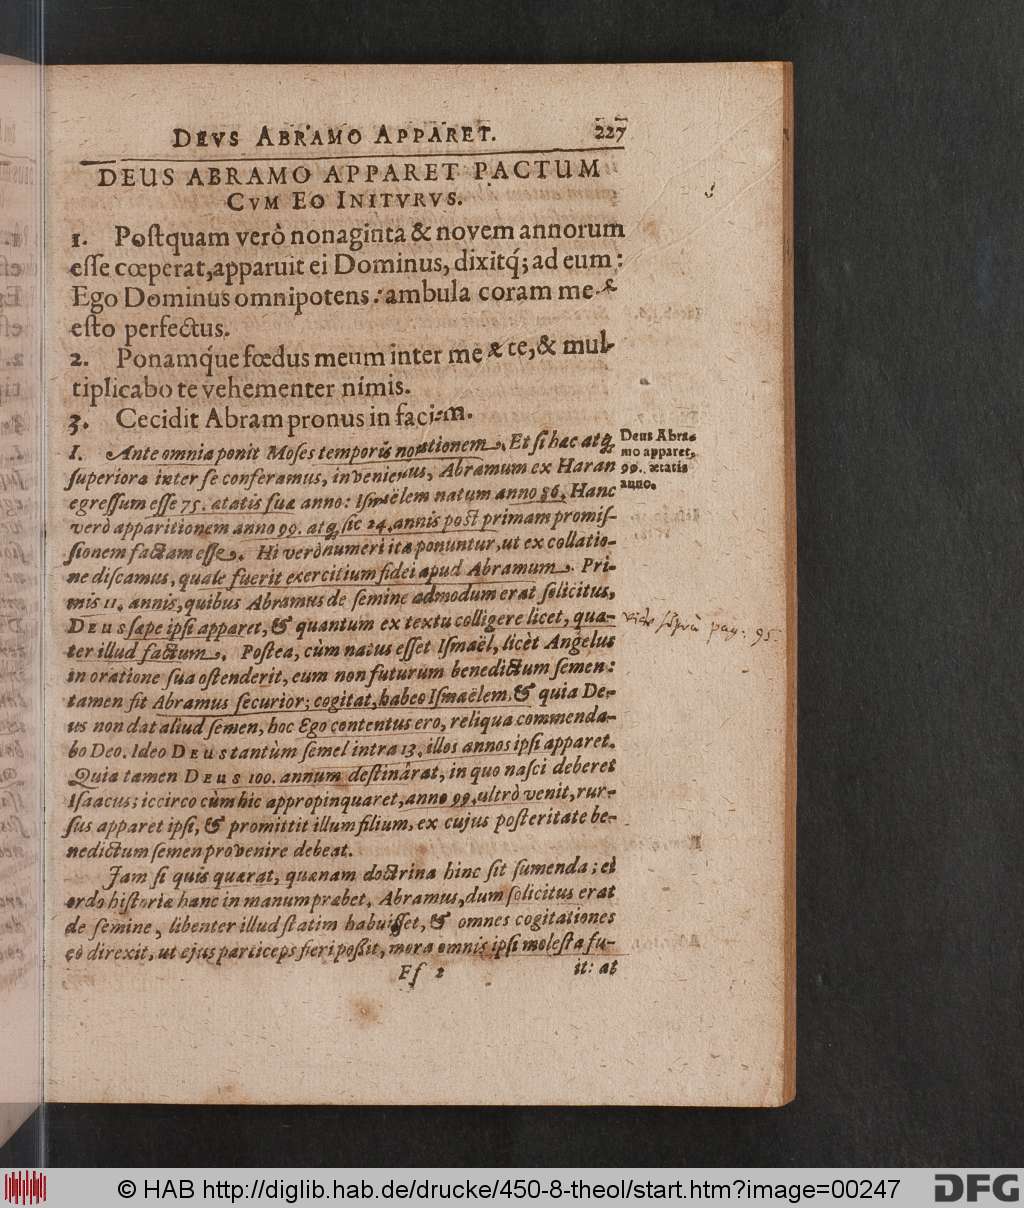 DEVS ABRAMO APPARET. 227
DEUS ABRAMO APPARET PACTUM
CVM EO INITVRVS.
1. Postquam verò nonaginta & novem annorum
esse cœperat, apparuit ei Dominus, dixitq́; ad eum:
Ego Dominus omnipotens: ambula coram me &
esto perfectus.
2. Ponamq́ue fœdus meum inter me & te, & mul-
tiplicabo te vehementer nimis.
3. Cecidit Abram pronus in faciem.
I. Ante omnia ponit Moses temporis notationem. Et si hac atq́
superiora inter se conferamus, inveniemus, Abramum ex Haran
egressum esse 75. ætatis suæ anno: Ismaëlem natum anno 86. Hanc
verò apparitionem anno 99. atq́ sic 24. annis post primam promis-
sionem factam esse. Hi verò numeri ita ponuntur, ut ex collatio-
ne discamus, quale fuerit exercitium fidei apud Abramum. Pri-
mis 11. annis, quibus Abramus de semine admodum erat solicitus,
DEUS sæpe ipsi apparet, & quantum ex textu colligere licet, qua-
ter illud factum. Postea, cùm natus esset Ismaël, licèt Angelus
in oratione sua ostenderit, eum non futurum benedictum semen:
tamen fit Abramus securior; cogitat, habeo Ismaëlem, & quia De-
us non dat aliud semen, hoc Ego contentus ero, reliqua commenda-
bo Deo. Ideo DEUS tantùm semel intra 13. illos annos ipsi apparet.
Quia tamen DEUS 100. annum destinârat, in quo nasci deberet
Isaacus; iccirco cùm hic appropinquaret, anno 99. ultrò venit, rur-
sus apparet ipsi, & promittit illum filium, ex cujus posteritate be-
nedictum semen provenire debeat.
Jam si quis quærat, quænam doctrina hinc sit sumenda; eî
ordo historiæ hanc in manum præbet. Abramus, dum solicitus erat
de semine, libenter illud statim habuisset, & omnes cogitationes
eò direxit, ut ejus particeps fieri possit, mora omnis ipsi molesta fu-
Ff 2 it: at
Deus Abra-
mo apparet,
99. ætatis
anno.
vide suprà pag: 95
© HAB http://diglib.hab.de/drucke/450-8-theol/start.htm?image=00247
DFG